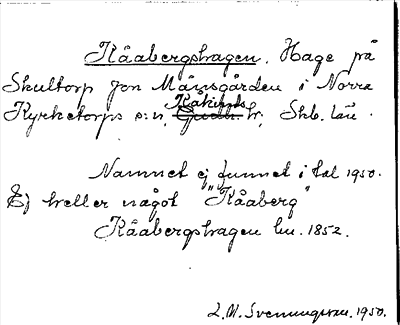 Kåabergshagen. Hage på
Skultorp från Månsgården i Norra
Kyrketorps s:n, Kåkinds Gudh. hd, Skb. län.
Namnet ej funnet i tal 1950.
Ej heller något "Kåaberg"
Kåabergshagen lm. 1852.
L.M. Svenungsson. 1950.